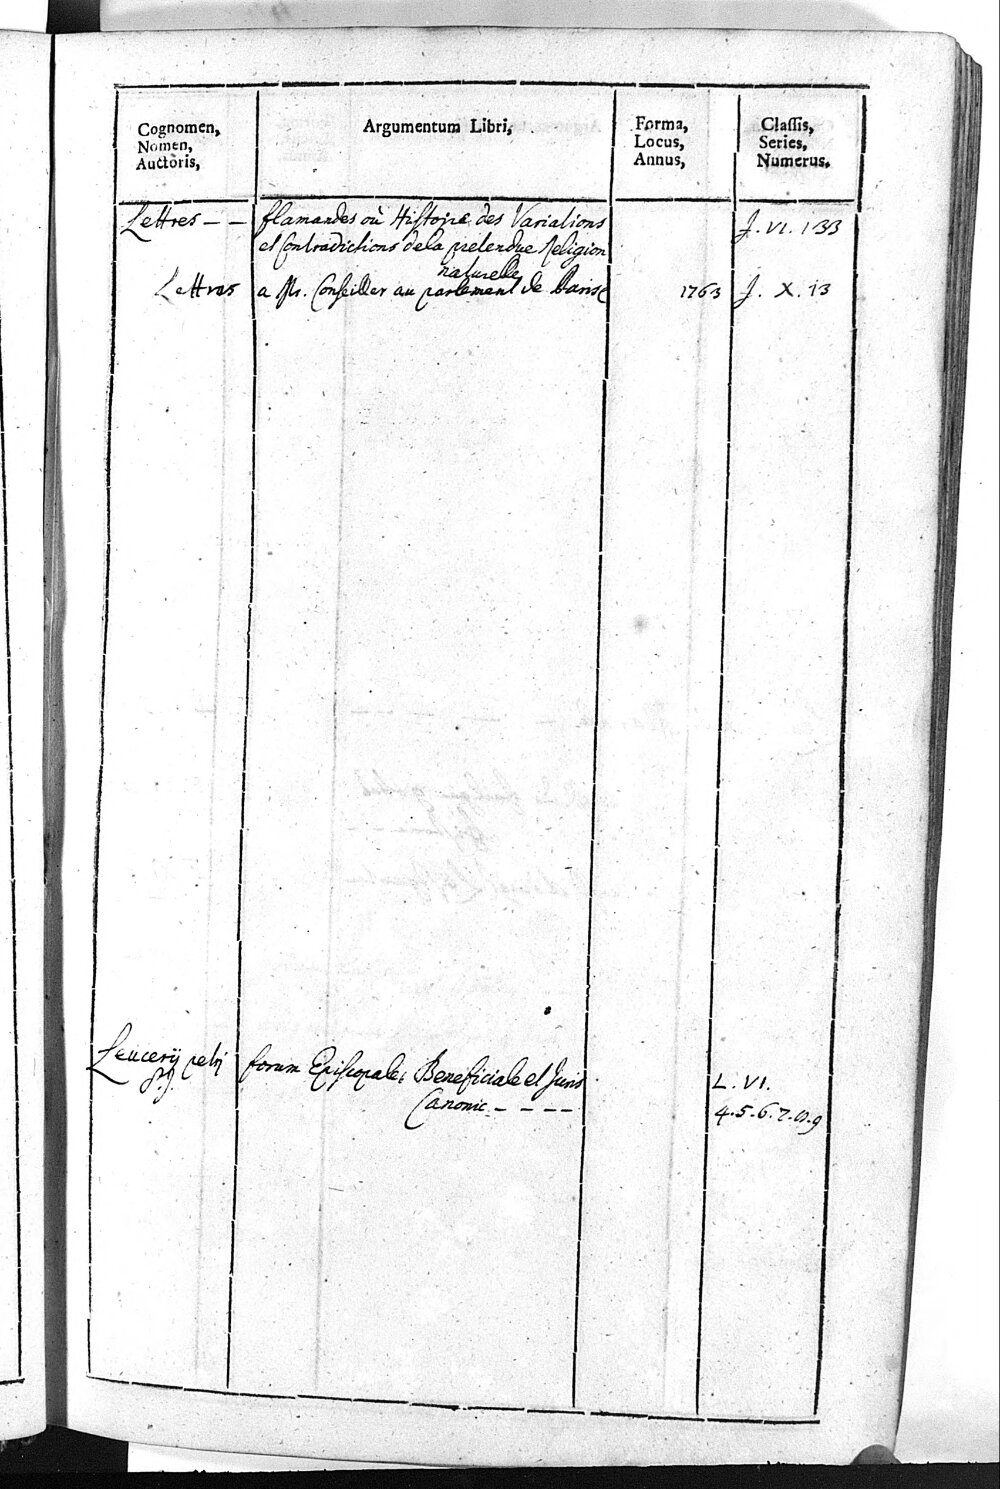 Cognomen,
Nomen,
Auctoris,
Argumentum Libri,
Forma,
Locus,
Annus,
Classis,
Series,
Numerus.
Lettres - - flamandes où Histoire des Variations J. VI. 133
et Contradictions de la pretendue Religion
naturelle
Lettres a Mr. Conseiller au parlement de Paris 1763 J. X. 13
Leucerij petri forum Episcopale, Beneficiale et Juris L. VI.
Canonic - - - - 4.5.6.7.8.9